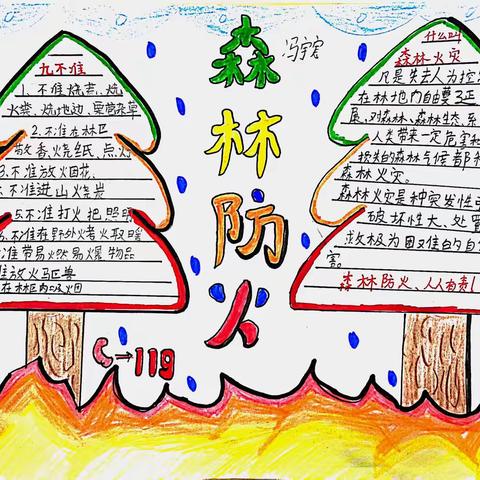 九不准
1.不准烧荒、烧
火粪、烧地边、
2.不准在林区
敬香烧纸、点火
3.不准放火烟花,
不准进山烧炭
5.不准打火把照明
不准在野外烤火取暖
准带易燃易爆物品
准放火驱兽
在林区内吸烟
森
林
防
火
冯宇宏
→119
什么叫
森林火灾
凡是失去人为控
在林地内自由蔓延
展,对森林、森林生态系
人类带来一定危害和
损失的森林
森林火灾。
森林火灾是种突发性
破坏性大、处置
救极为困难的自
害。
森林防火、人人有责!